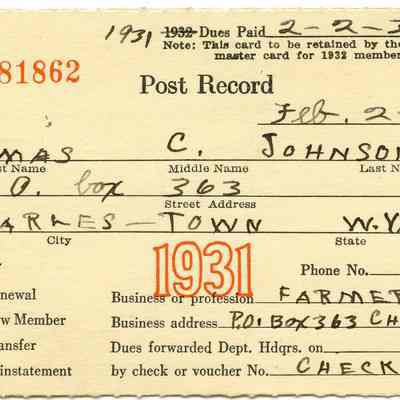 1931 1932 Dues Paid 2-2-3
Note: This card to be retained by the
master card for 1932 member
81862
Post Record
Feb. 2-
MAS C. JOHNSON
st Name Middle Name Last N
O. box 363
Street Address
ARLES-TOWN W.VA
City State
1931
Phone No.
newal Business or profession FARMER
w Member Business address P.O. Box 363 CH
ansfer Dues forwarded Dept. Hdqrs. on
instatement by check or voucher No. CHECK